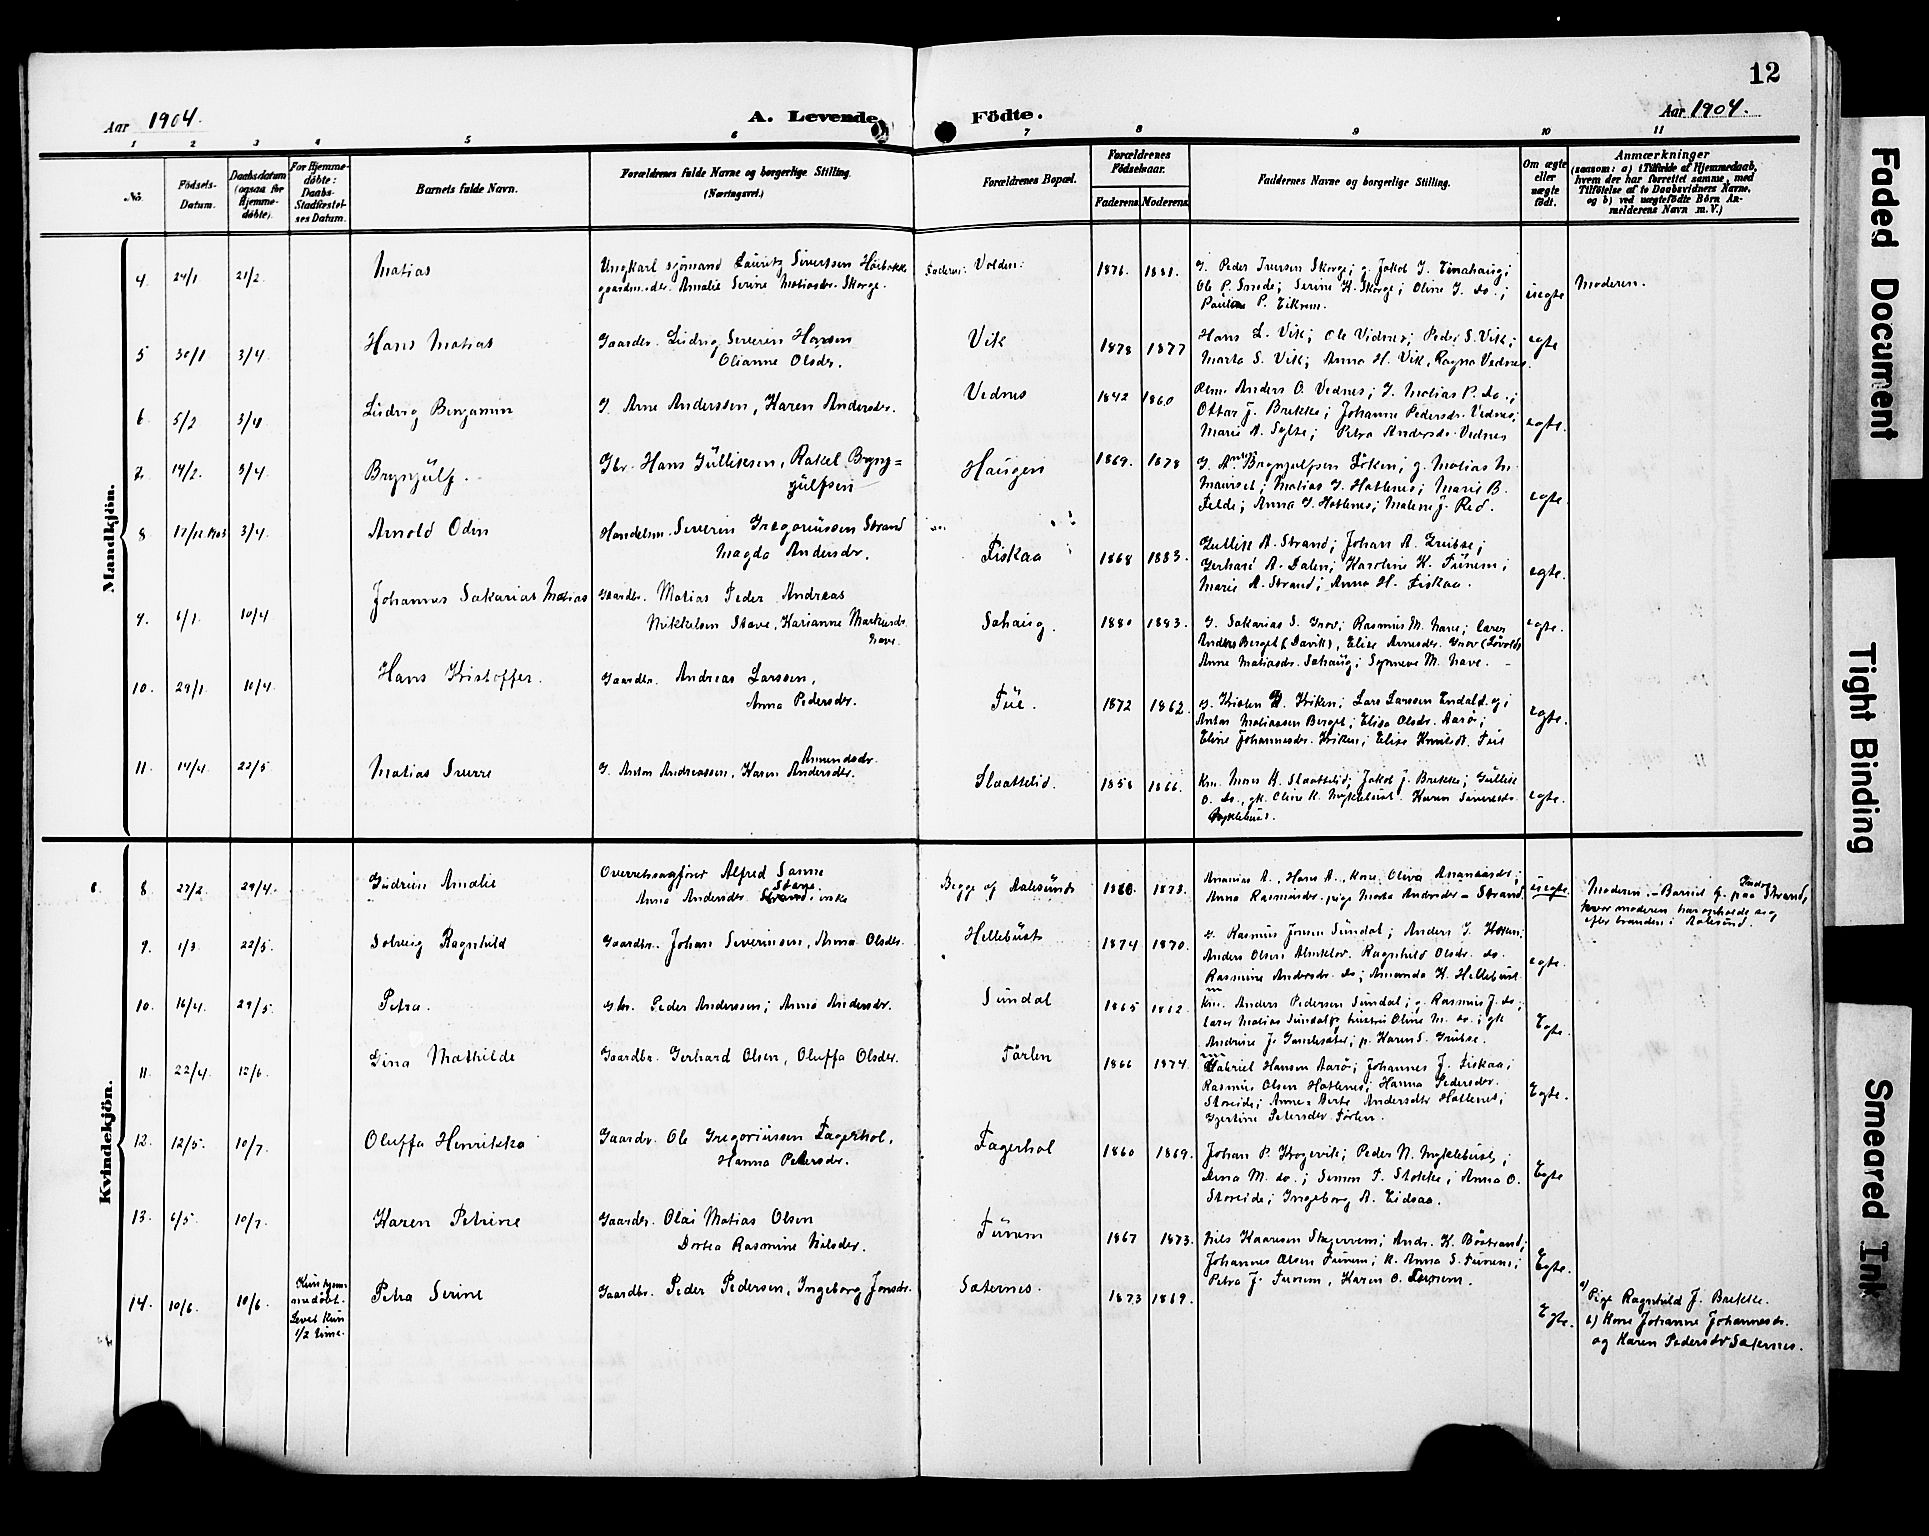 12
Aar 1904.
A. Levende Födte.
Aar 1904.
1 2 3 4 5 6 7 8 9 10 11
No.
Födsels-Datum.
Daabsdatum (ogsaa for Hjemme-döbte).
For Hjemme-döbte: Daabs-Stadfæstel-ses Datum.
Barnets fulde Navn.
Forældrenes fulde Navne og borgerlige Stilling. (Næringsvei.)
Forældrenes Bopæl.
Forældrenes Födselsaar.
Faderens. Moderens.
Faddernes Navne og borgerlige Stilling.
Om ægte eller uægte födt.
Anmærkninger
(saasom: a) i Tilfælde af Hjemmedaab, hvem der har forrettet samme, med Tilföielse af to Daabsvidners Navne, og b) ved uægtefödte Börn An-melderens Navn m. V.)
Mandkjön.
4. 24/1 21/2 Matias
Ungkarl sjömand Lauritz Sivertsen
gaardm.dr. Amalie Serine Matiasdr. Skorge.
Faderen: Volden: 1876. 1881.
G. Peder Iversen Skorge; g. Jakob J.
Ole P. Smede; Serine K. Skorge; Oline J. do.;
P. Eikrem.
uegte Moderen.
5 30/1 3/4 Hans Matias
Gaardbr. Ludvig Severin Hansen
Olianne Olsdr.
Vik 1878 1877
Hans L. Vik; Ole Vidnes; Peder S. Vik;
Marta S. Vik; Anna H. Vik, Ragna Vednes.
egte
6 5/2 3/4 Ludvig Benjamin
G. Arne Anderssen, Karen Andersdr.
Vednes 1842 1860
Anders O. Vednes; G. Matias P. do.;
Ottar J. Brekke; Johanne Pedersdr. Vednes;
Marie A. Sylte; Petra Andersdr. Vednes
egte.
7. 14/2. 3/4 Brynjulf.
Gbr. Hans Gulliksen, Rakel Brynj=
julfsen
Haugen 1869. 1878
G. Brynjulfsen Löken; g. Matias M.
Mauriset; Matias J. Hatlenes; Marie B.
Felde; Anna J. Hatlenes; Malene J. Red.
egte.
8 17/12 1903 3/4. Arnold Odin
Handelsm. Severin Gregoriussen Strand
Magda Andersdr.
Fiskaa 1868 1883.
Gullik A. Strand; Johan A. Grubse;
Gerhard A. Dalen; Karoline K. Furem;
Marie A. Strand; Anna H. Fiskaa.
egte.
9. 6/1. 10/4 Johannes Sakarias Matias
Gaardbr. Matias Peder Andreas
Mikkelsen Stave, Karianne Markusdr.
Nave.
Sahaug. 1880 1883.
G. Sakarias S. Grov; Rasmus M. Nave; lærer
Anders Berget (Davik), Elise Arnesdr. Grov
Anne Matiasdr. Sahaug; Synneve M. Nave.
egte.
10. 29/1. 10/4 Hans Kristoffer.
Gaardbr. Andreas Larssen,
Anna Pedersdr.
Tue. 1872 1862.
g. Kristen Kriken; Lars Larssen Endal
Anton Matiassen Berget; Elisa Olsdr. Aarö;
Eline Johannesdr. Kriken; Elise Tue
egte.
11. 14/4. 22/5. Matias Sverre
G. Anton Andreassen, Karen Andersdr.
Amundsdr.
Slaattelid. 1858 1866.
Km. Mons A. Slaattelid; Jakob J. Brekke; Gullik
O. do., gk. Oline K. Myklebust. Karen Siversdr.
Myklebust.
egte.
Kvindekjön.
8. 27/2. 24/4. Gudrun Amalie
Overretssagförer Alfred Sanne
Anna Andersdr. Strand, enke
Stave.
Begge af Aalesund 1880. 1873.
Ananias A., Hans A., Kone Oliva Ananiasdr;
Anna Rasmusdr. pige Marta Andersdr - Strand
uegte.
Moderen. - Barnet f. paa Indre Strand,
hvor moderen har opholdt sig
efter branden i Aalesund.
9. 1/3 22/5. Solveig Ragnhild
Gaardbr. Johan Severinsen, Anna Olsdr.
Hellebust 1874 1870.
g. Rasmus Jonsen Sundal; Anders J.
Anders Olsen Almklov. Ragnhild Olsdr. do.
Rasmine Andersdr. do; Amanda K. Hellebust
egte.
10. 16/4. 29/5. Petra.
Gbr. Peder Anderssen; Anna Andersdr.
Sundal 1865 1862.
Km. Anders Pedersen Sundal; g. Rasmus J. do;
lærer Matias Sundal og hustru Oline M. do.; gk
Andrine J. Gamlesæter; p. Karen S. Grubse.
Egte.
11. 22/4. 12/6. Gina Mathilde
Gaardbr. Gerhard Olsen, Oluffa Olsdr.
Törlen 1866 1874.
Gabriel Hansen Aarö; Johannes J. Fiskaa;
Rasmus Olsen Hatlenes; Hanna Pedersdr.
Storeide; Anne Berte Andersdtr Hatlenes;
Gjertine Petersdr. Törlen.
Egte.
12. 12/5. 10/7. Oluffa Henrikka
Gaardbr. Ole Gregoriussen Fagerhol,
Hanna Petersdr.
Fagerhol 1860 1869.
Johan P. Krogevik; Peder N. Myklebust;
Lina M. do.; Simon F. Stokke; Anna O.
Storeide; Ingeborg A. Eidsaa.
Egte
13. 6/5. 10/7. Karen Petrine
Gaardbr. Olai Matias Olsen
Dortea Rasmine Nilsdr.
Furem 1867 1873.
Nils Kaaresen Stegervem; Andr. K. Böstrand;
Johannes Olsen Furem; K. Anna S. Furem;
Petra J. Furem, Karen O. Furem.
Egte.
14. 10/6. 10/6. Kun hjem-
medöbt.
Levet kun
1/2 time.
Petra Serine
Gaardbr. Peder Pedersen, Ingeborg Jonsdr.
Sæternes. 1873 1869.
Egte.
a) Pige Ragnhild J. Brekke.
b) Kone Johanne Johannesdr.
og Karen Pedersdr Sæternes.
Faded Document
Tight Binding
Smeared Ink